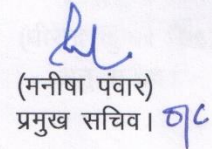 (मनीषा पंवार)
प्रमुख सचिव।